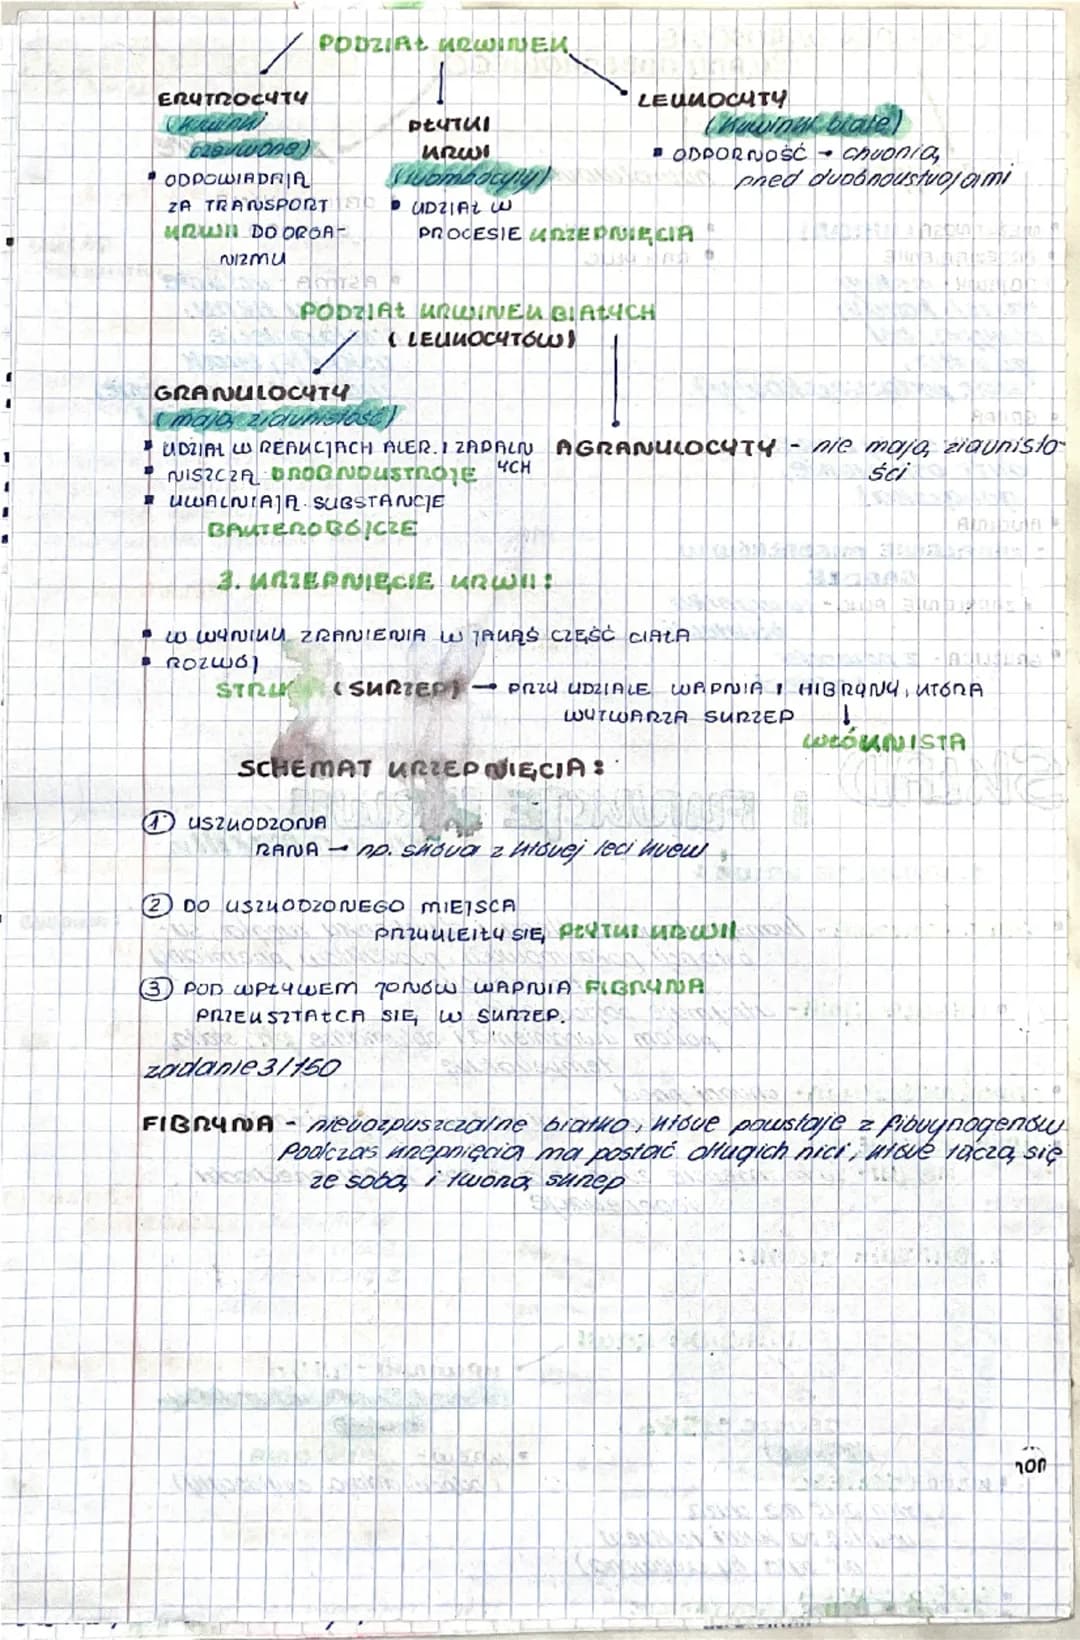 PODZIAŁ KRWINEK
ERYTROCYTY
(krwinki
czerwone)
ODPOWIADAJĄ
ZA TRANSPORT
KRWII DO ORGA-
NIZMU
PŁYTKI
KRWI
(trombocyty)
UDZIAŁ W
PROCESIE KRZEPNIĘCIA
LEUKOCYTY
(krwinki białe)
ODPORNOŚĆ → chronią
przed drobnoustrojami
PODZIAŁ KRWINEK BIAŁYCH
(LEUKOCYTÓW)
GRANULOCYTY
(mają ziarnistość)
UDZIAŁ W REAKCJACH ALER. I ZAPALN
YCH
NISZCZĄ DROBNOUSTROJE
UWALNIAJĄ SUBSTANCJE
BAKTEROBÓJCZE
AGRANULOCYTY - nie mają ziarnisto-
ści
3. KRZEPNIĘCIE KRWII:
W WYNIKU ZRANIENIA W JAKĄŚ CZĘŚĆ CIAŁA
ROZWÓJ
(SKRZEP) → PRZY UDZIALE WAPNIA I HIBRYNY, KTÓRA
WYTWARZA SKRZEP ↓
WŁÓKNISTA
SCHEMAT KRZEPNIĘCIA:
1 USZKODZONA
RANA → np. skóra z której leci krew
2 DO USZKODZONEGO MIEJSCA
PRZYKLEIŁY SIĘ PŁYTKI KRWII
3 POD WPŁYWEM JONÓW WAPNIA FIBRYNA
PRZEKSZTAŁCA SIĘ W SKRZEP.
zadanie 3/150
FIBRYNA - nierozpuszczalne białko, które powstaje z fibrynogenów
Podczas krzepnięcia ma postać długich nici, które łączą się
ze sobą i tworzą skrzep